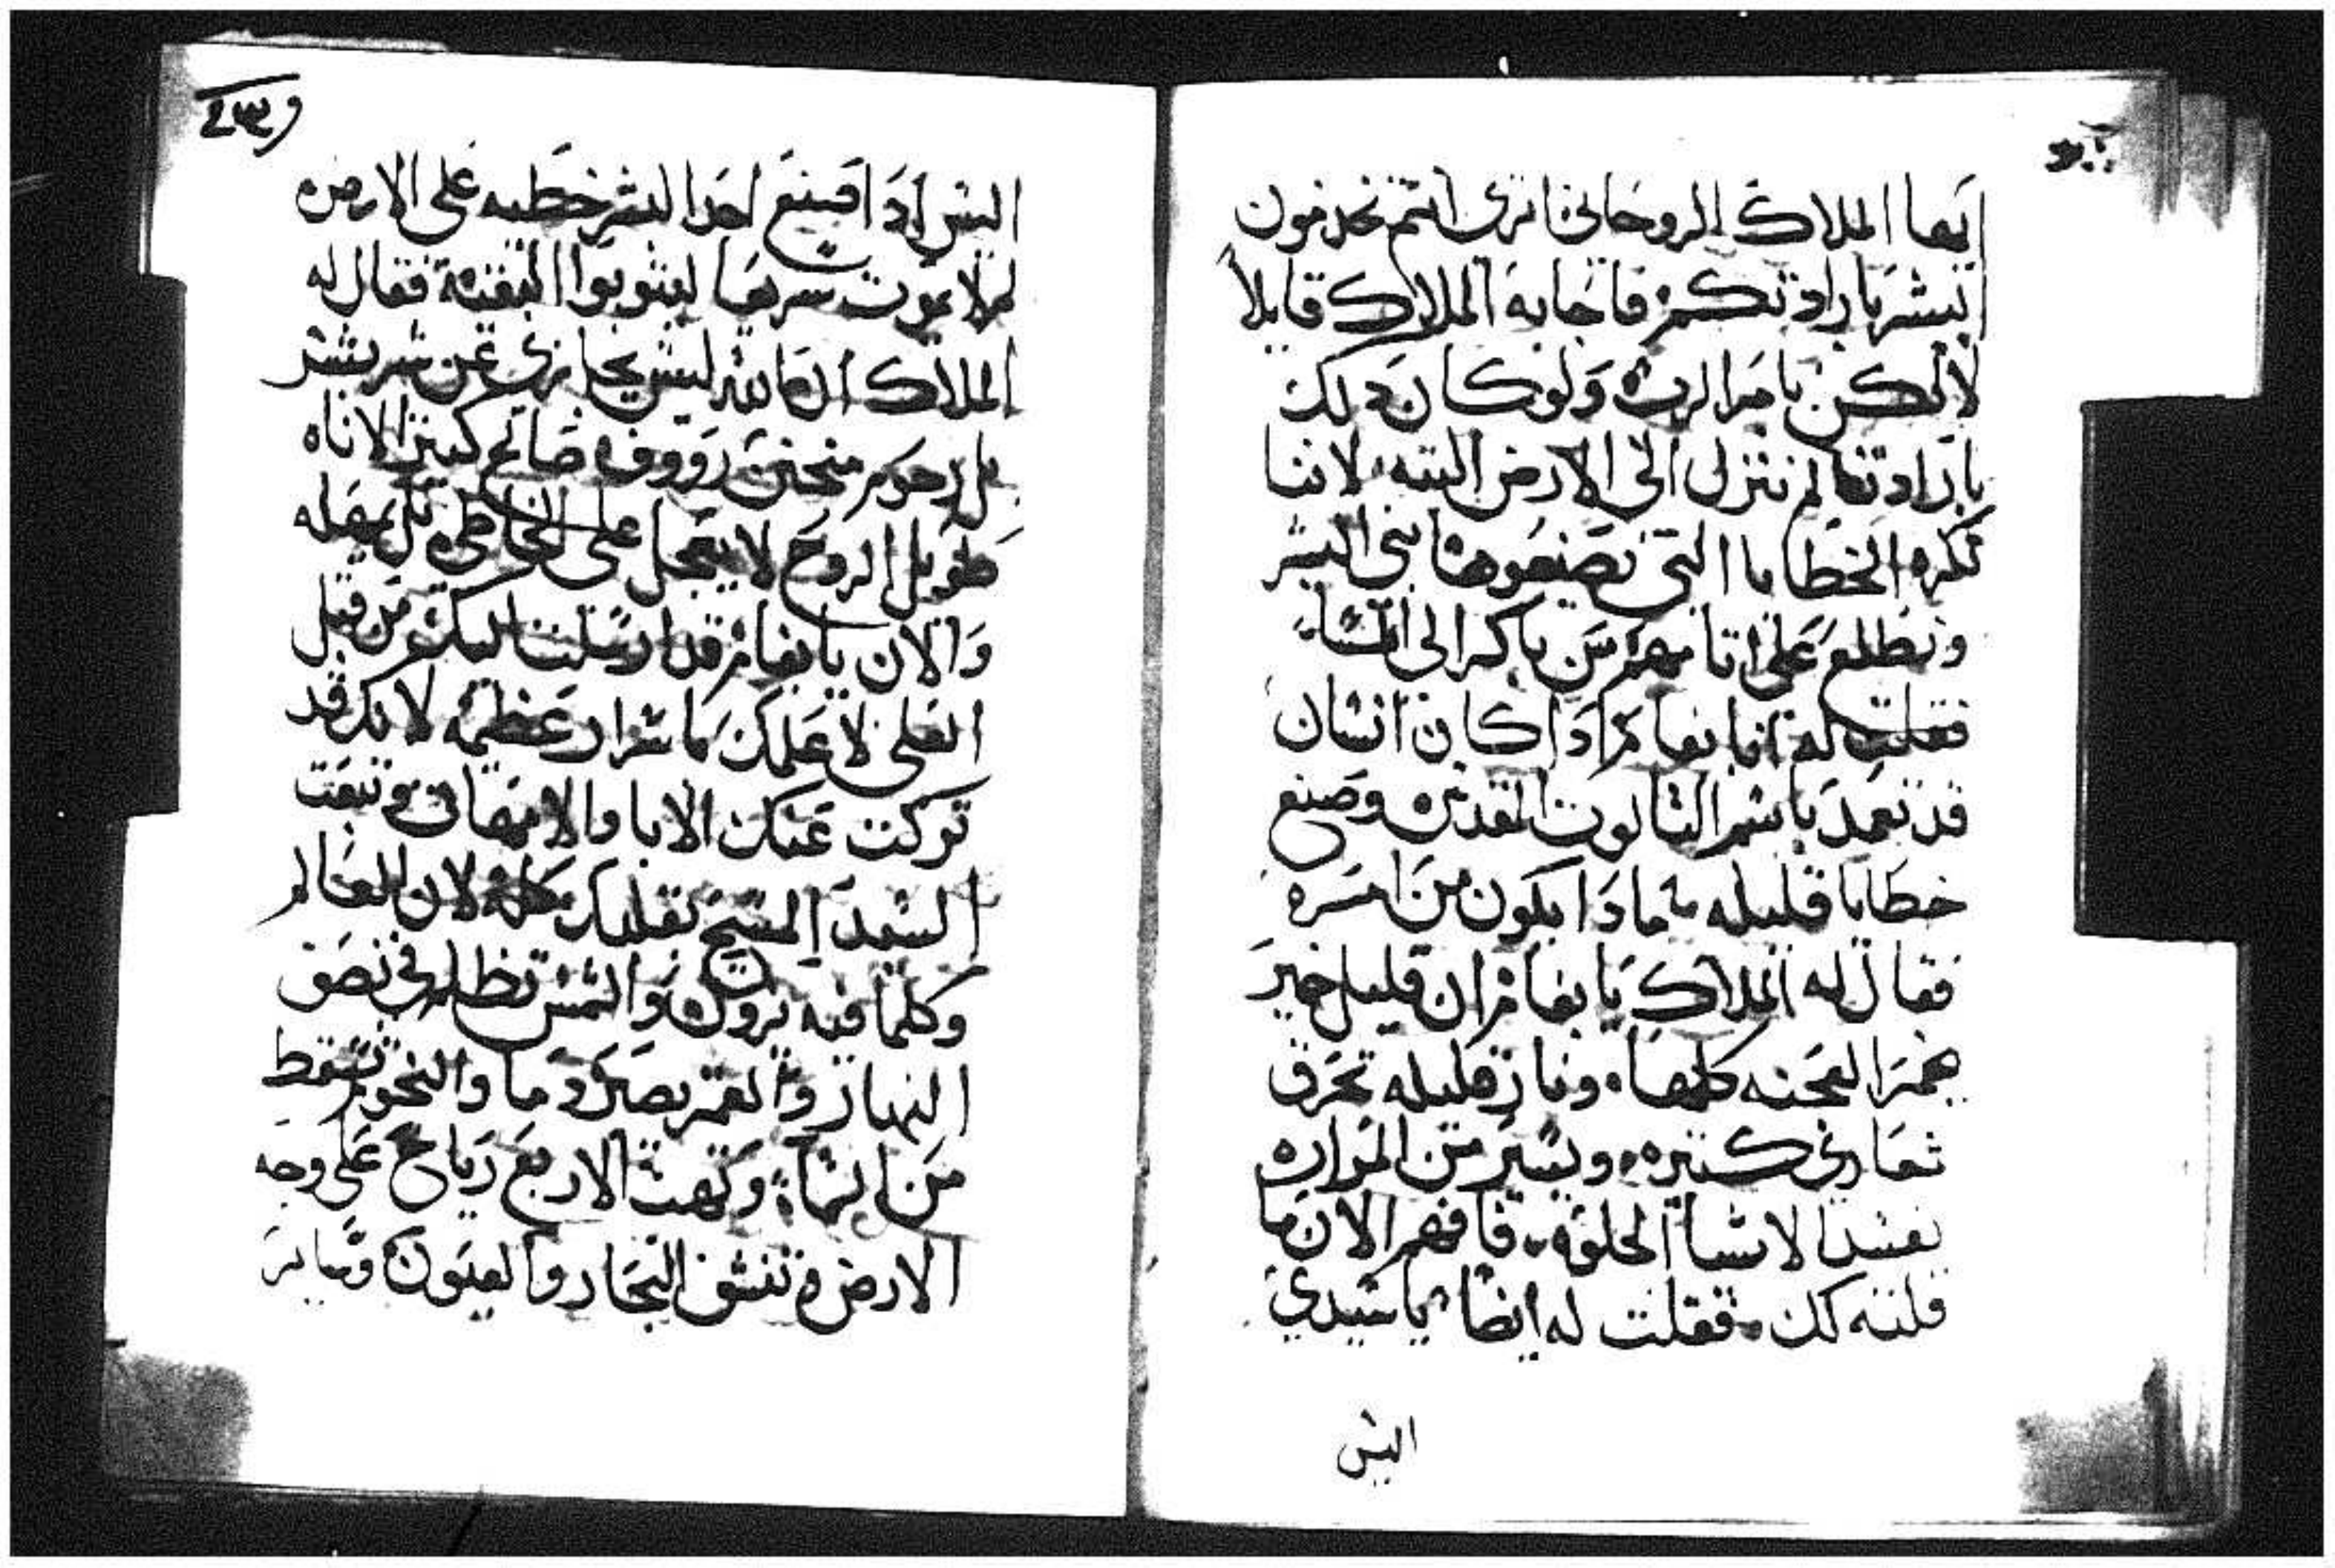 ايها الملاك الروحاني اترى انتم تخدمون
البشر بارادتكم فاجابه الملاك قايلا
لا لكن بامر الرب ولو كان دلك
بارادتنا لم ننزل الى الارض البته لاننا
نكره الخطايا التي تصنعوها بني البشر
ونطلع على اتامهم من باكر الى المسا
فقلت له انا بفام ادا كان انسان
قد تعمد باسم التالوت المقدس وصنع
خطايا قليله مادا يكون من امره
فقال له الملاك يا بفام ان قليل خمير
يخمر العجنه كلها ونار قليله تحرق
شعاري كتيره ويسير من المراره
يفسد الاشيا الحلوه فافهم الان ما
قلته لك فقلت له ايضا يا سيدي
اليس
اليس ادا صنع احد البشر خطيه على الارض
لم لا يموت سريعا ليتوبوا البقيه فقال له
الملاك ان الله ليس يجازي عن شر بشر
بل رحوم متحنن رووف صالح كبير الاناه
طويل الروح لا يعجل على الخاطي بل يمهله
والان يا بفام قد ارسلت اليك من قبل
العلي لاعلمك باسرار عظيمه لانك قد
تركت عنك الابا والامهات وتبعت
السيد المسيح بقلبك كله لان العالم
وكلما فيه يزول والشمس تظلم في نصف
النهار والقمر يصير دما والنجوم تسقط
من السما وتهب الاربع رياح على وجه
الارض وتنشف البحار والعيون وساير